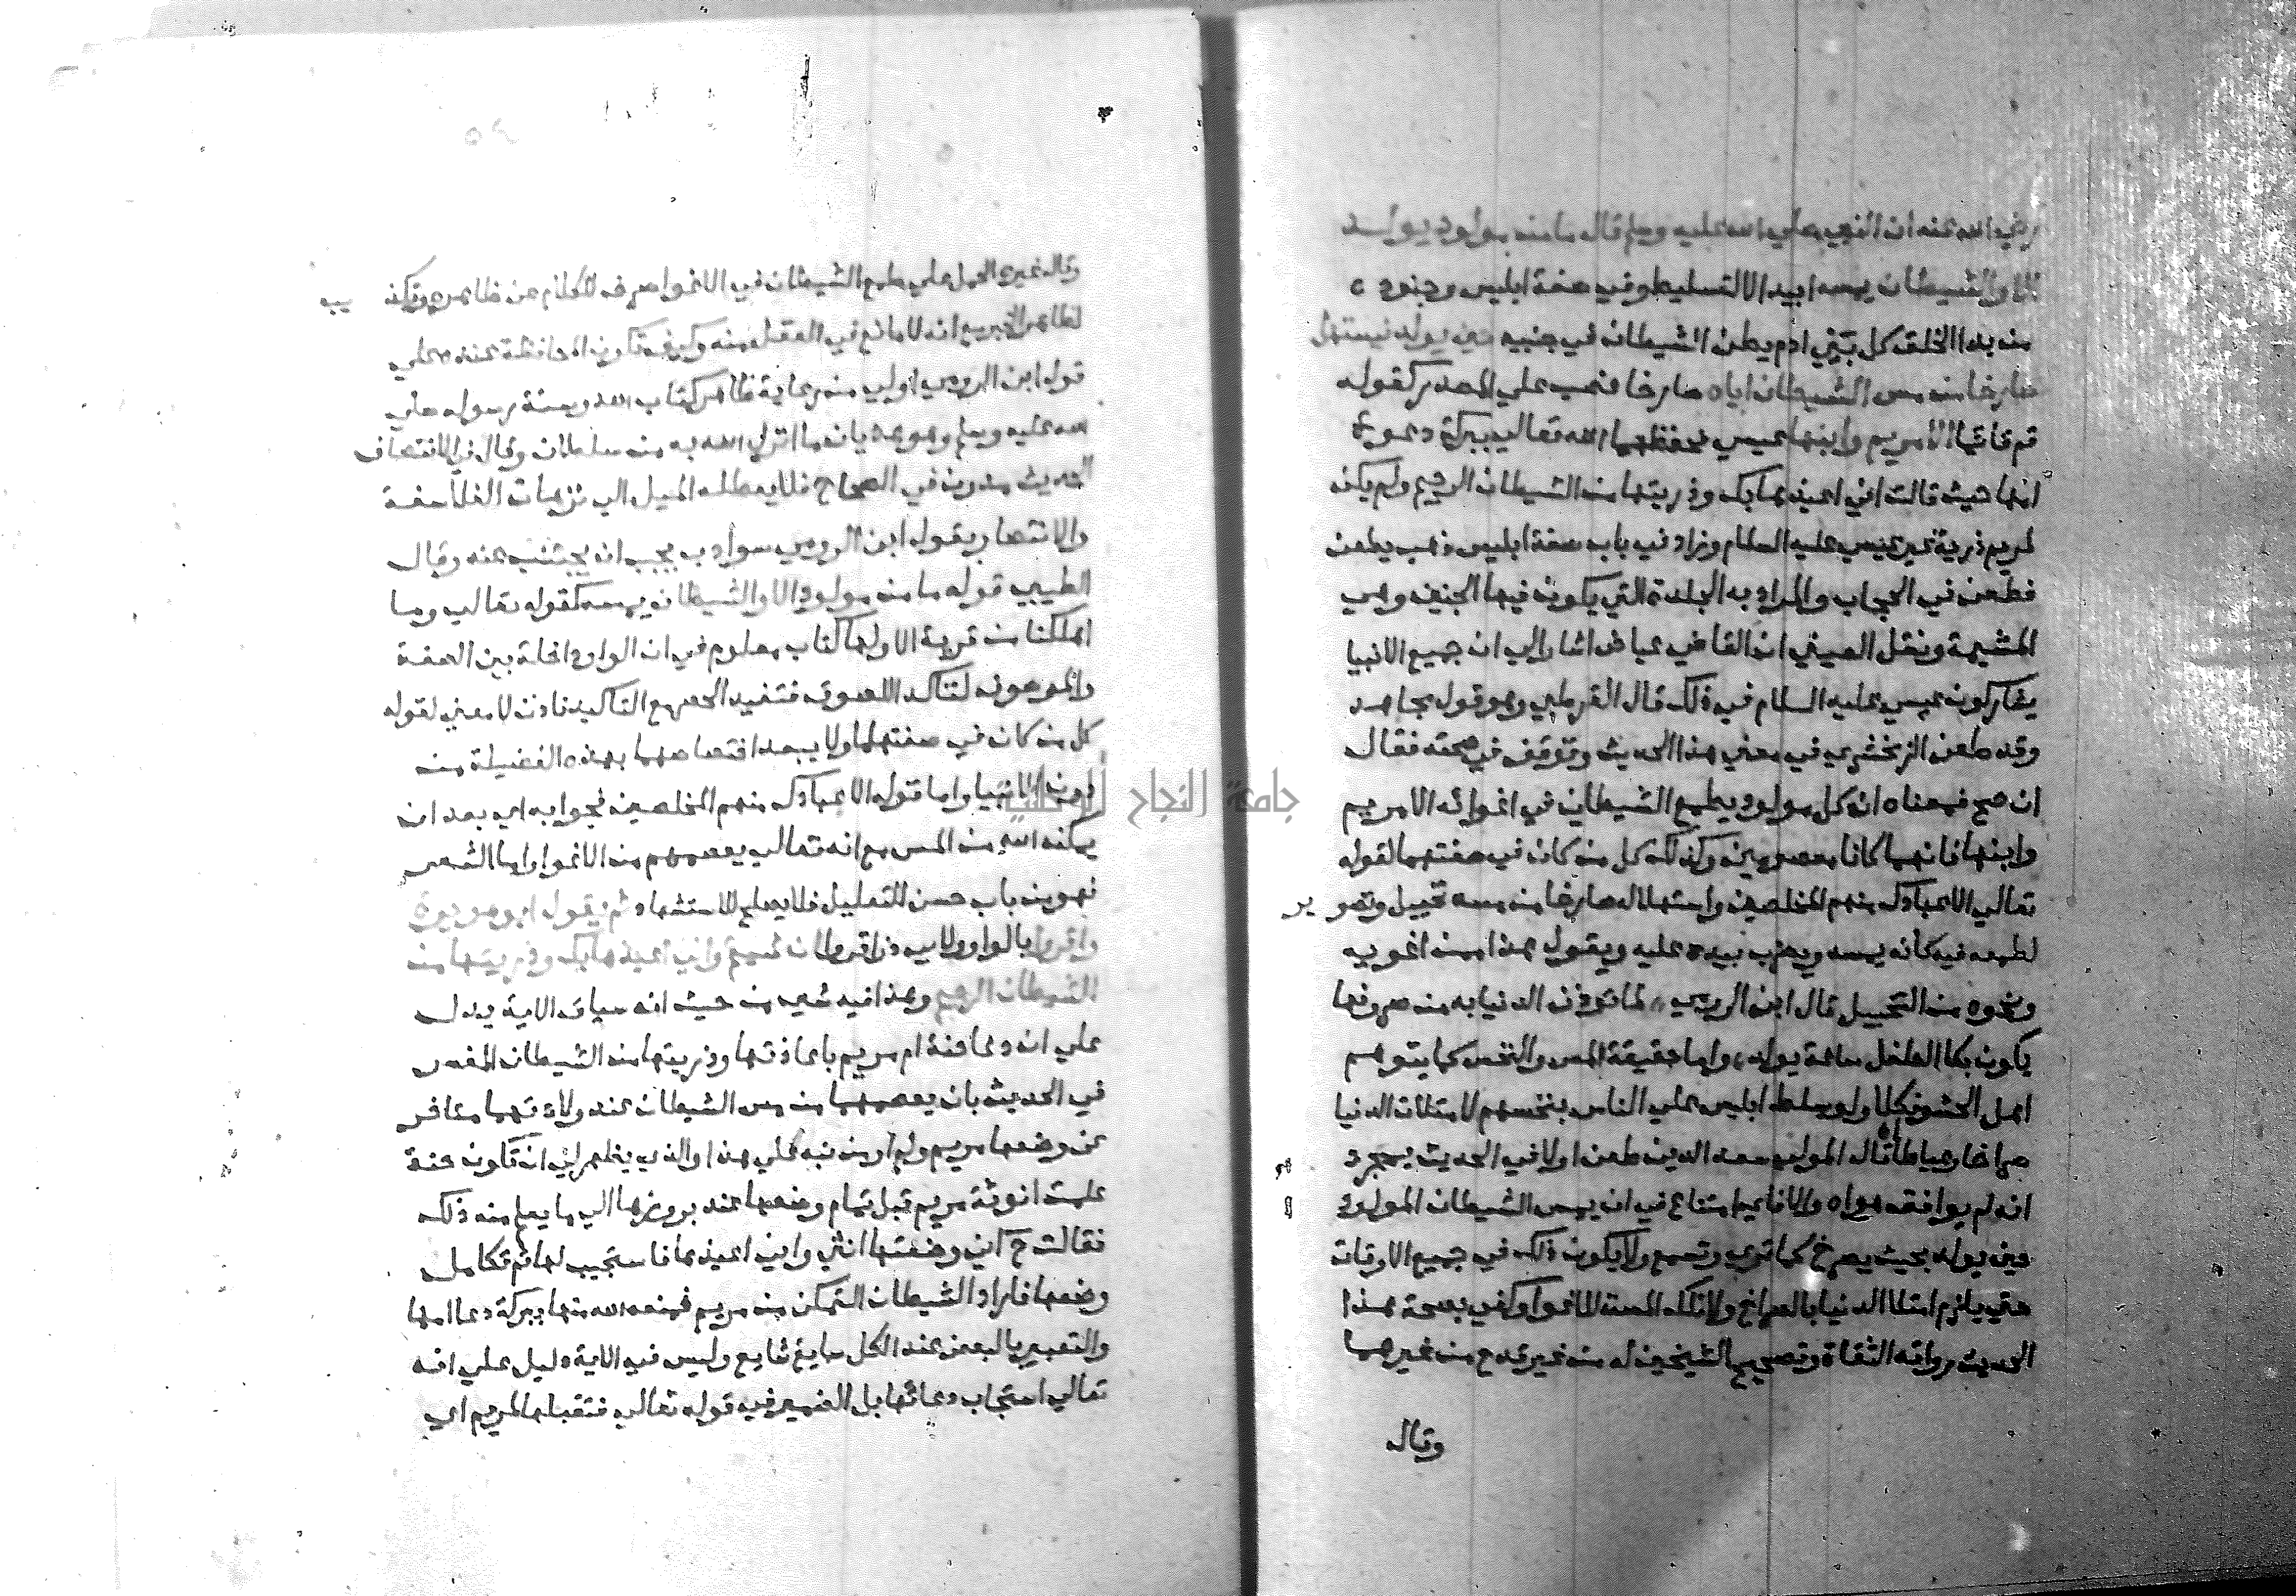 رضي الله عنه ان النبي صلي الله عليه وسلم قال ما من مولود يولد
الا والشيطان يمسه ابيد الا لتسليط وفي صفة ابليس وجنوده
من بدا الخلق كل بني ادم يطعن الشيطان في جنبيه حين يولد فيستهل
صارخا من مس الشيطان اياه صارخا نصب علي المصدر كقوله
قم قائما الا مريم وابنها عيسي حفظهما الله تعالي ببركة دعوة
امها حيث قالت اني اعيذها بك وذريتها من الشيطان الرجيم ولم يكن
لمريم ذرية غير عيسي عليه السلام وزاد في باب صفة ابليس ذهب يطعن
فطعن في الحجاب والمراد به الجلدة التي يكون فيها الجنين وهي
المشيمة ونقل العيني ان القاضي عياض اشار الي ان جميع الانبيا
يشاركون عيسي عليه السلام في ذلك قال القرطبي وهو قول مجاهد
وقد طعن الزمخشري في معني هذا الحديث وتوقف في صحته فقال
ان صح فمعناه ان كل مولود يطمع الشيطان في اغوائه الا مريم
وابنها فانهما كانا معصومين وكذلك كل من كان في صفتهما لقوله
تعالي الا عبادك منهم المخلصين واستهلاله صارخا من مسه تخييل وتصوير
لطمعه فيه كانه يمسه ويضرب بيده عليه ويقول هذا ممن اغويه
ونحوه من التخييل قال ابن الرومي لما توذن الدنيا به من صروفها
يكون بكا الطفل ساعة يولد واما حقيقة المس والنخس كما يتوهم
اهل الحشو فكلا ولو سلط ابليس علي الناس بنخسهم لامتلات الدنيا
صراخا وعياطا قال المولي سعد الدين طعن اولا في الحديث بمجرد
انه لم يوافقه هواه والا فاي امتناع في ان يمس الشيطان المولود
حين يولد بحيث يصرخ كما تري وتسمع ولا يكون ذلك في جميع الاوقات
حتي يلزم امتلا الدنيا بالصراخ ولا تلك المسة للاغوا وكفي بصحة هذا
الحديث رواته الثقاة وتصحيح الشيخين له من غير قدح من غيرهما
وقال
وقال غيره الحمل علي طمع الشيطان في الاغوا صرف للكلام عن ظاهره وتكذيب
لظاهر الخبر مع انه لا مانع في العقل منه وكيف تكون المحافظة عنده علي
قول ابن الرومي اولي من رعاية ظاهر كتاب الله وسنة رسوله صلي
الله عليه وسلم وهو هذيان ما انزل الله به من سلطان وقال في الانتصاف
الحديث مدون في الصحاح فلا يعطله الميل الي نزعات الفلاسفة
والانتصار بقول ابن الرومي سو ادب يجب ان يجتنب عنه وقال
الطيبي قوله ما من مولود الا والشيطان يمسه كقوله تعالي وما
اهلكنا من قرية الا ولها كتاب معلوم في ان الواو داخلة بين الصفة
والموصوف لتاكد اللصوق فتفيد الحصر مع التاكيد فاذن لا معني لقوله
كل من كان في صفتهما ولا يبعد اختصاصهما بهذه الفضيلة من
دون الانبيا واما قوله الا عبادك منهم المخلصين فجوابه اي بعد ان
يمكنه الله من المس مع انه تعالي يعصمهم من الاغوا واما الشعر
فهو من باب حسن التعليل فلا يصلح للاستشهاد ثم يقول ابو هريرة
واقروا بالواو ولابي ذر اقروا ان شيتم واني اعيذها بك وذريتها من
الشيطان الرجيم وهذا فيه شي من حيث انه سياق الاية يدل
علي ان دعا حنة ام مريم باعاذتها وذريتها من الشيطان المفسر
في الحديث بان يعصمهما من مس الشيطان عند ولادتهما متاخر
عن وضعها مريم ولم ار من نبه علي هذا والذي يظهر لي ان تكون حنة
علمت انوثة مريم قبل تمام وضعها عند بروزها الي ما يعلم منه ذلك
فقالت ح اني وضعتها انثي واني اعيذها فاستجيب لها ثم تكامل
وضعها فاراد الشيطان التمكن من مريم فمنعه الله منها ببركة دعا امها
والتعبير بالبعض عند الكل سايغ شايع وليس في الاية دليل علي انه
تعالي استجاب دعائها بل الضمير في قوله تعالي فتقبلها لمريم اي
جامعة النجاح الوطنية